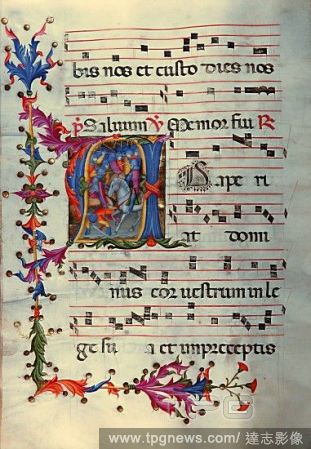 bis nos et custo dies nos
ps Saluum V Memor fui R
A
Aperi
at domi
nus cor uestrum in le
ge su a et in preceptis
www.tpgnews.com/ 達志影像